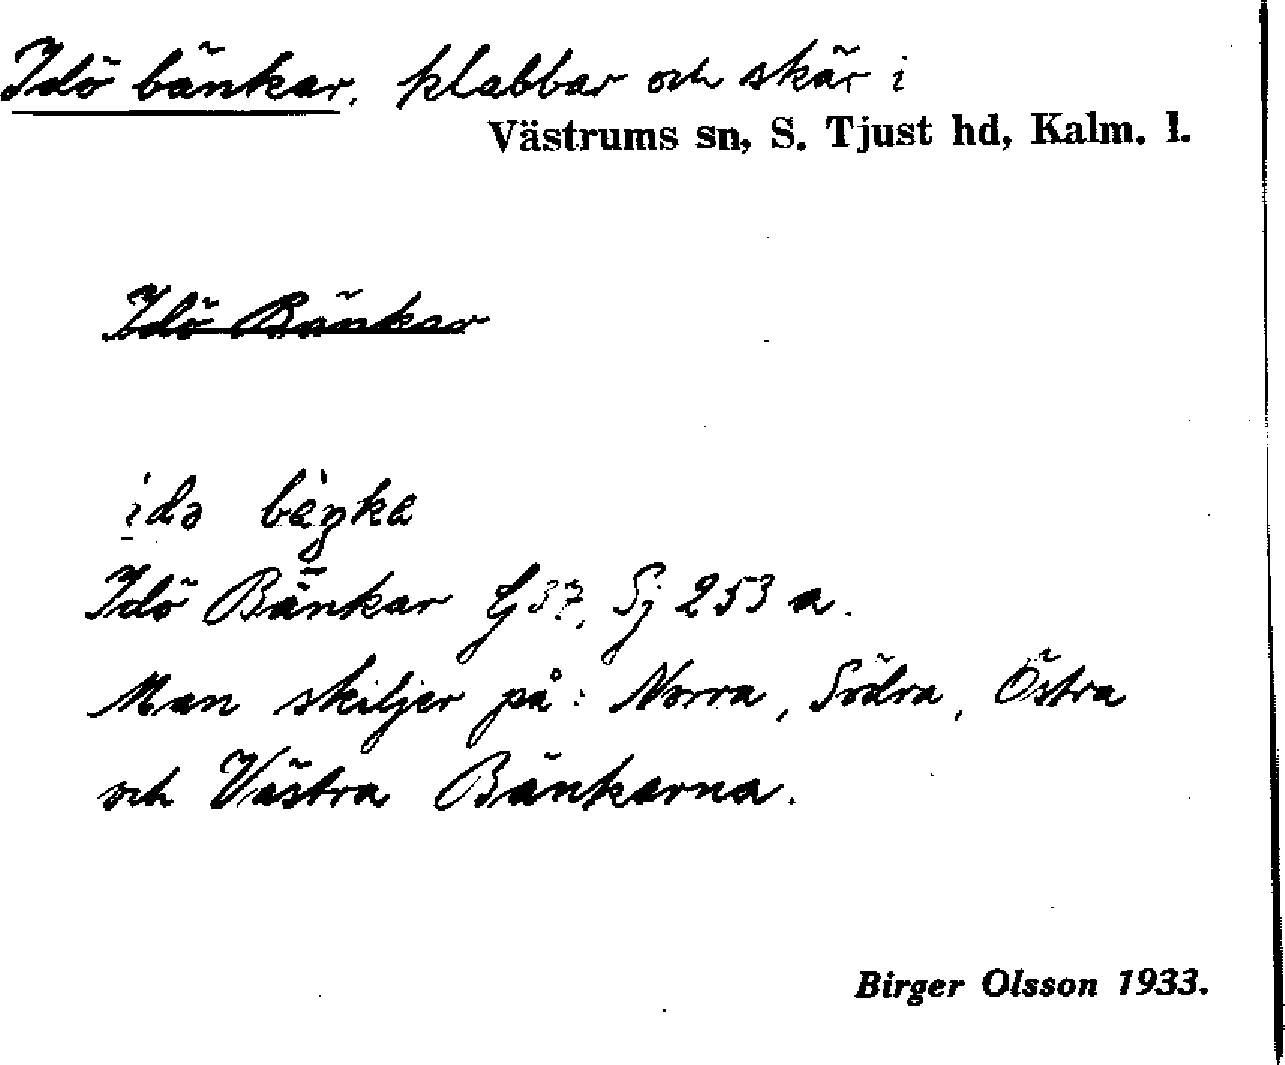 Idö bänkar, klabbar och skär i
Västrums sn, S. Tjust hd, Kalm. l.
Idö Bänkar
Idö Bänkar G37, Sj 253 a.
Man skiljer på: Norra, Södra, Östra
och Västra Bänkarna.
Birger Olsson 1933.